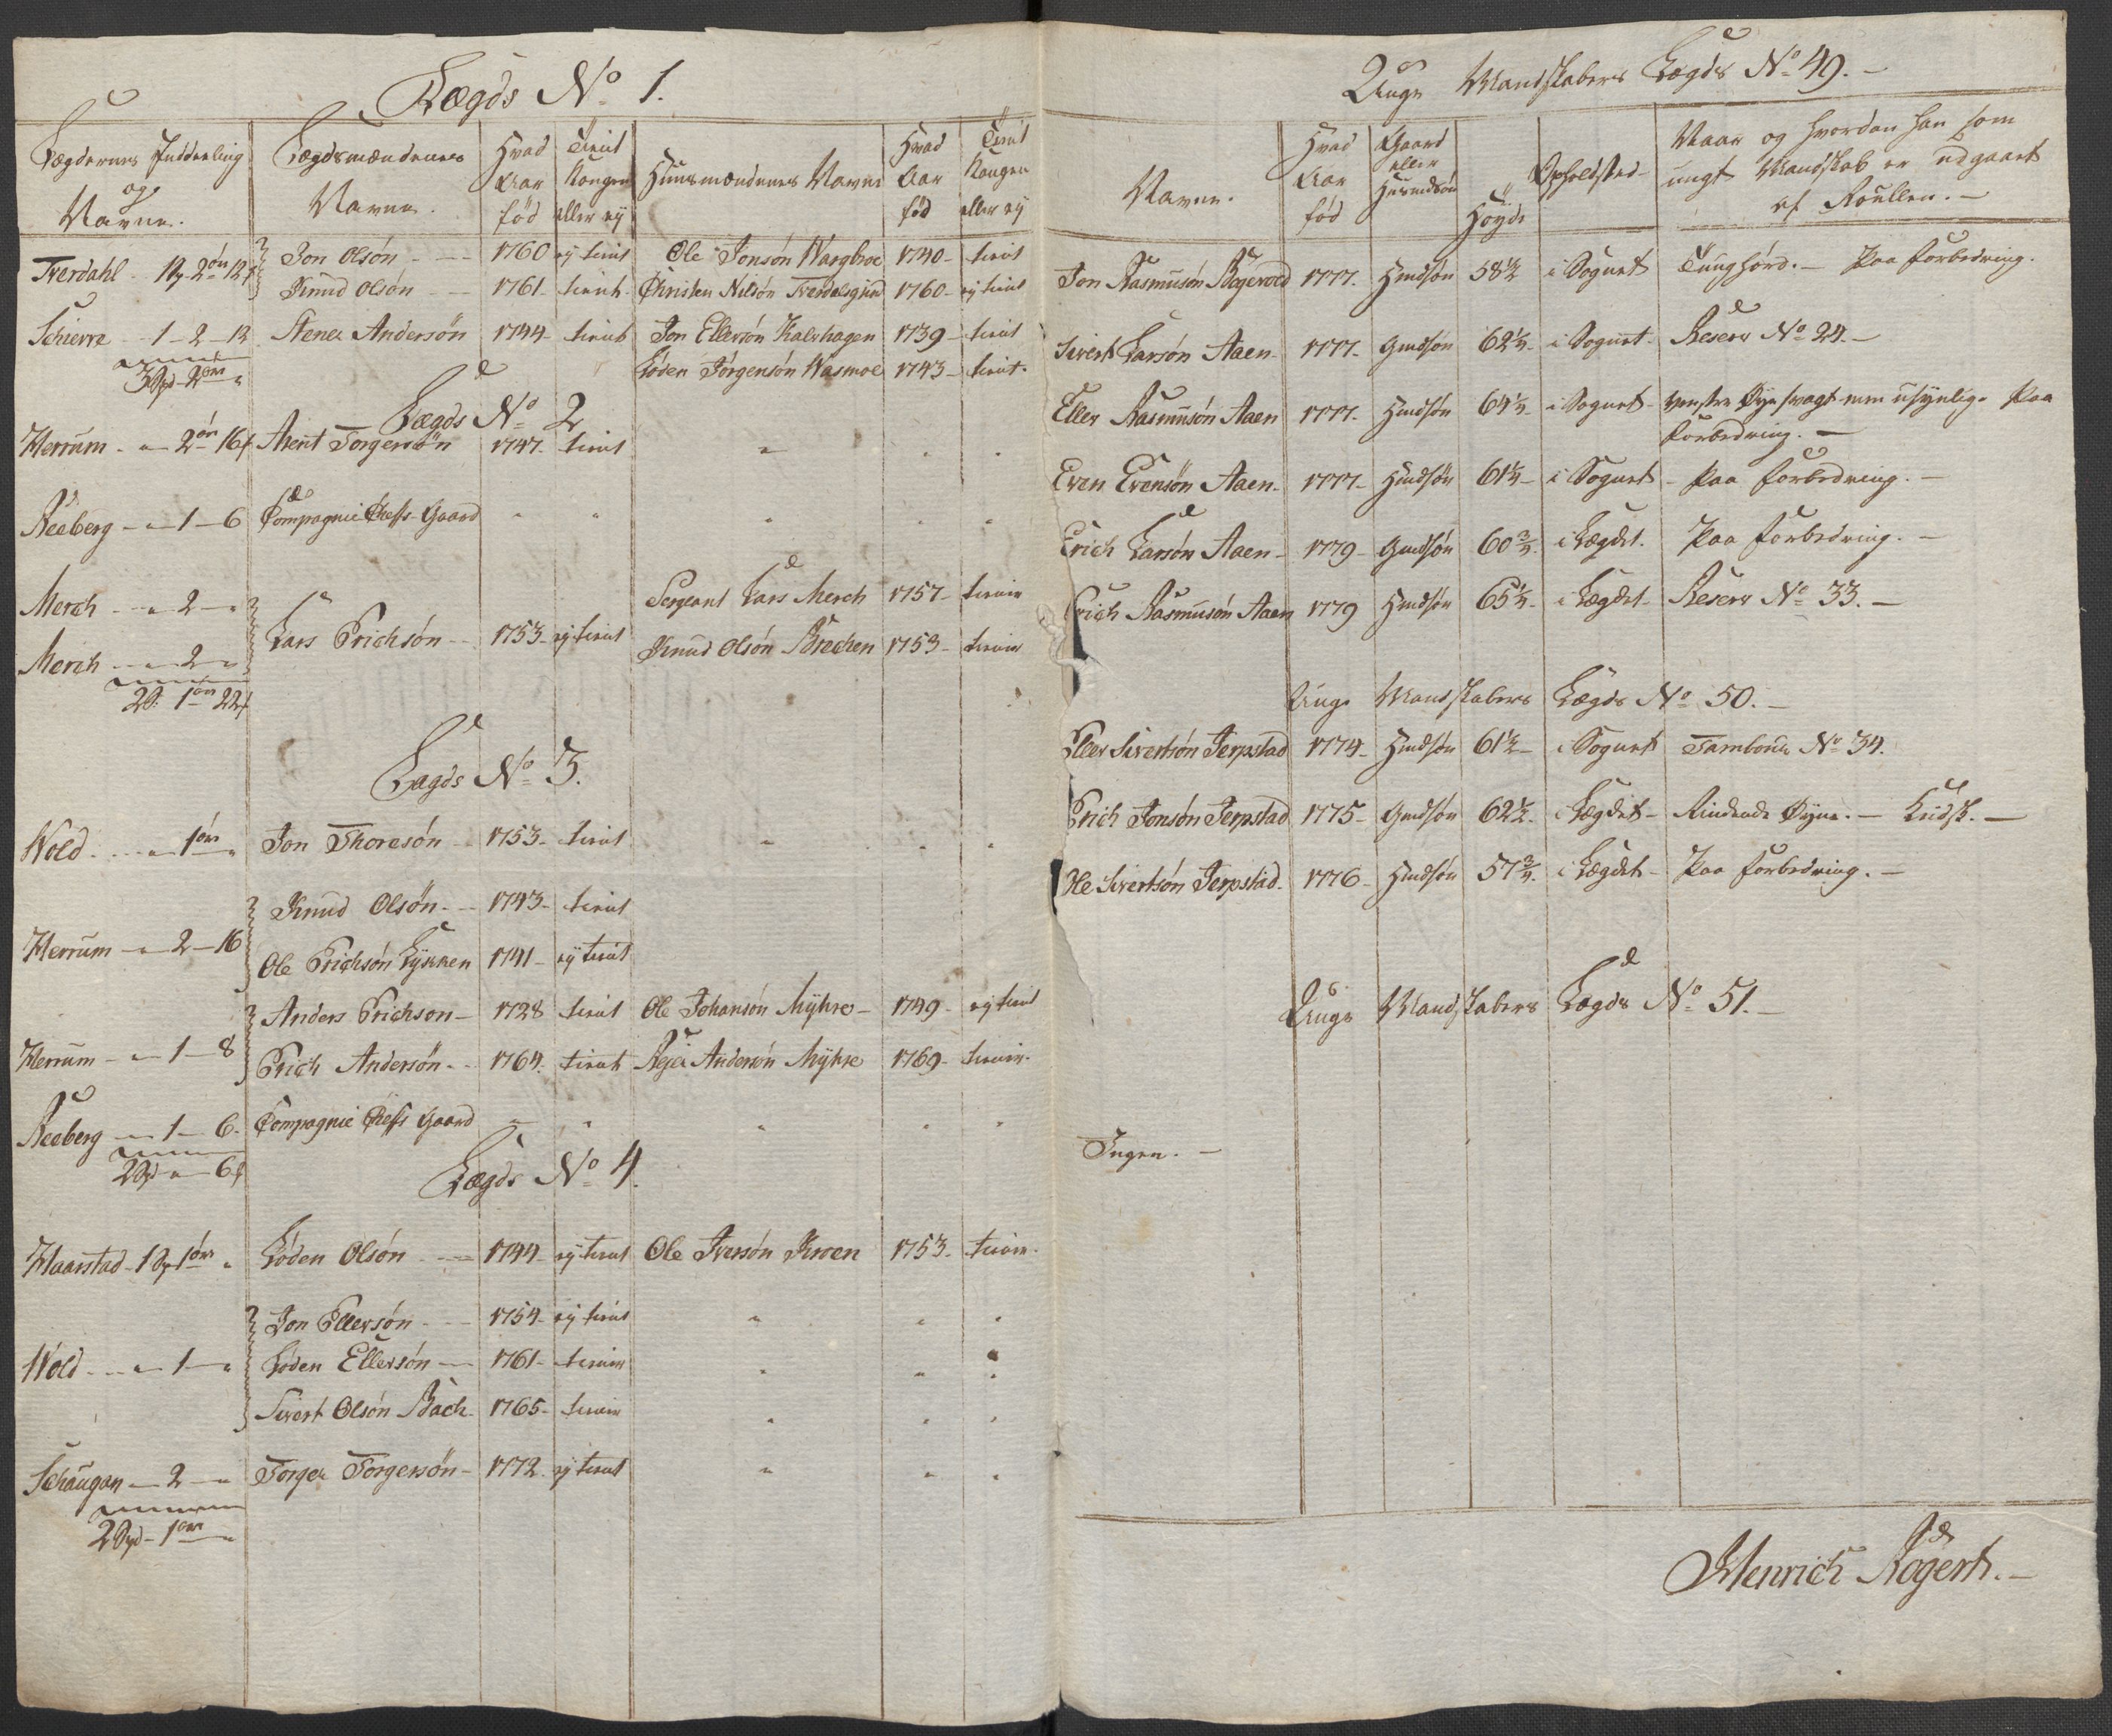 Lægds No 1.
Lægdernes Inddeeling og Navne. Lægdsmændenes Navne. Hvad Aar fød Tient Kongen eller ej Huusmændenes Navne Hvad Aar fød Tient Kongen eller ej
Tverdahl 1 2 ör 12 Jon Olsön 1760 ej tient Ole Jonsön Wargbroe 1740 tient
Knud Olsön 1761 tient Christen Nilsön Tverdalsgierd 1760 ej tient
Schierre 1 - 2 - 12 Stener Andersön 1744 tient Jon Ellersön Kalvhagen 1739 tient
3 2 ör Löden Jörgensön Wasmoe 1743 tient
Lægds No 2
Herrum " 2 ör 16 Arent Torgersön 1747 tient " " "
Reeberg " 1 - 6 Compagnie Chefs Gaard " " " " "
Merch " 2 " Sergeant Lars Merch 1757 tiener
Lars Erichsön 1753 ej tient Knud Olsön Brechen 1753 tiener
Merch " 2 "
2 1 ör 22
Lægds No 3.
Wold " 1 ör " Jon Thoresön 1753 tient " " "
Knud Olsön 1743 tient
Herrum " 2 - 16 Ole Erichsön Lykken 1741 ej tient
Anders Erichson 1728 tient Ole Johansön Myhre 1749 ej tient
Herrum " 1 - 8 Erich Andersön 1764 tient Rejer Andersön Myhre 1769 tiener
Reeberg 1 - 6 Compagnie Chefs Gaard " " " " "
2 " 6
Lægds No 4.
Haarstad 1 1 ör " Löden Olsön 1744 ej tient Ole Iversön Kroen 1753 tiener
Jon Ellersön 1754 ej tient " " "
Wold " 1 " Löden Ellersön 1761 tiener " " "
Sivert Olsön Bach 1765 tiener " " "
Schaugan 2 " Torger Torgersön 1772 ej tient " " "
2 1 ör "
Unge Mandskabers Lægds No 49.
Navne. Hvad Aar fød Gaard eller Huusmdsön Höyde Opholdsted Naar og hvordan han som ungt Mandskab er udgaaet af Roullen.
Jon Rasmusön Bogevold 1777. Hmdsön 58 1/2 i Sognet Tunghörd. - Paa forbedring.
Sivert Larsön Aaen 1777. Gmdsön 62 1/4 i Sognet Reserv No 24.
Eller Rasmusön Aaen 1777. Hmdsön 64 1/4 i Sognet venstre Øye svagt men usynlig. Paa
forbedring.
Even Evensön Aaen 1777 Hmdsön 61 1/4 i Sognet Paa forbedring.
Erich Larsön Aaen 1779 Gmdsön 60 3/4 i Lægdet. Paa forbedring.
Erich Rasmusön Aaen 1779 Hmdsön 65 1/4 i Lægdet Reserv No 33.
Unge Mandskabers Lægds No 50.
Eller Sivertsön Jerpstad 1774 Hmdsön 61 1/2 i Sognet Tambour No 34.
Erich Jonsön Jerpstad 1775 Gmdsön 62 1/2 i Lægdet Rindende Øyne.
Ole Sivertsön Jerpstad 1776 Hmdsön 57 3/4 i Lægdet Paa forbedring.
Unge Mandskabers Lægds No 51.
Ingen.
Henrich Rogert.